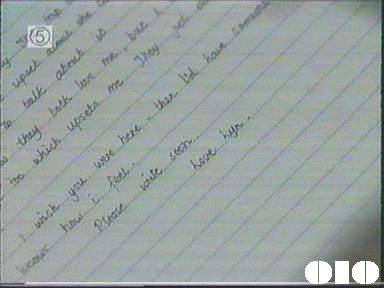 5
upset about
to talk about it
they both love me, but I
too which upsets me. They just
I wish you were here, then I'd have someone
knows how i feel.
Please write soon.
love Lyn.
010